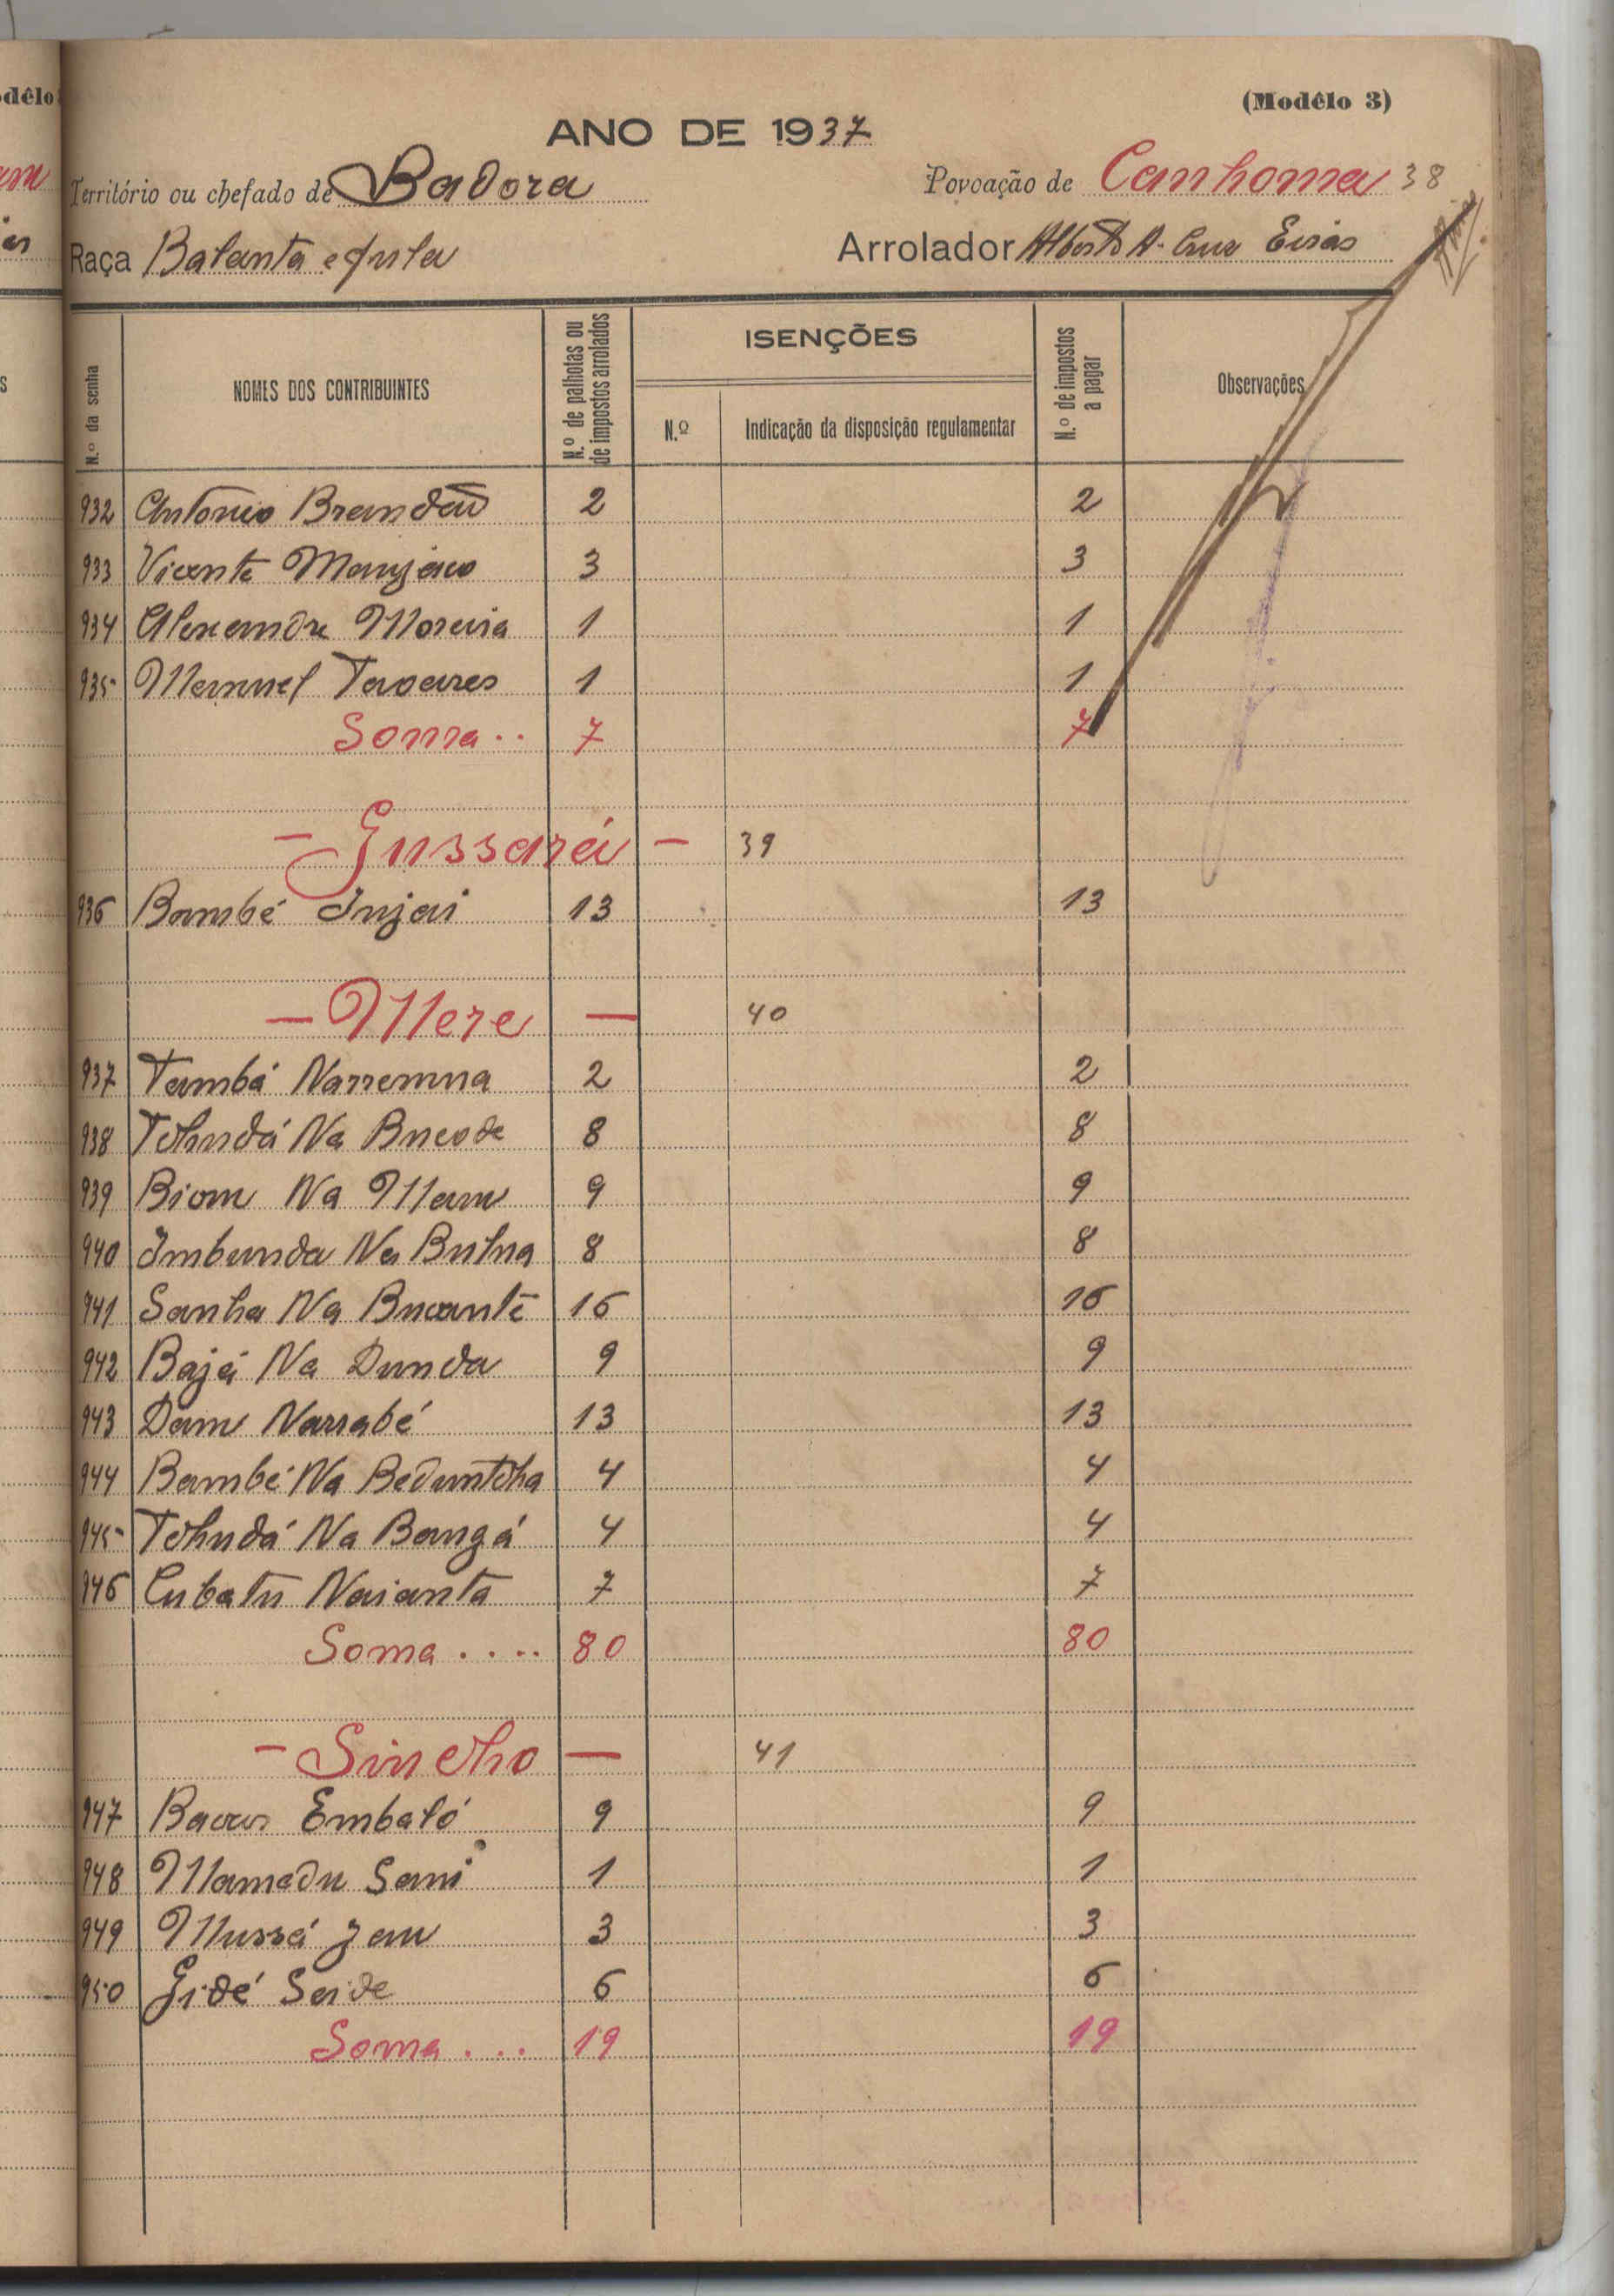 (Modêlo 3)
ANO DE 1937
Território ou chefado de Badora Povoação de Canhoma 38
Raça Balanta e fula Arrolador Alberto A. Cruz Eiras
N.º da senha
NOMES DOS CONTRIBUINTES
N.º de palhotas ou de impostos arrolados
ISENÇÕES
N.º
Indicação da disposição regulamentar
N.º de impostos a pagar
Observações
932 António Brandão 2 2
933 Vicente Manjaco 3 3
934 Alexandre Moreira 1 1
935 Manuel Tavares 1 1
Soma .. 7 7
- Gussará - 39
936 Bambé Injai 13 13
- Mere - 40
937 Tambá Narremna 2 2
938 Tchudá Na Bucode 8 8
939 Biom Na Mam 9 9
940 Imbunda Na Bulna 8 8
941 Sanha Na Bucante 16 16
942 Bajá Na Dunda 9 9
943 Dam Narrabé 13 13
944 Bambé Na Beduntcha 4 4
945 Tchudá Na Bangá 4 4
946 Cubatu Naianta 7 7
Soma .... 80 80
- Sincho - 41
947 Bacar Embaló 9 9
948 Mamadu Sani 1 1
949 Mussá Jau 3 3
950 Gidé Seide 6 6
Soma ... 19 19